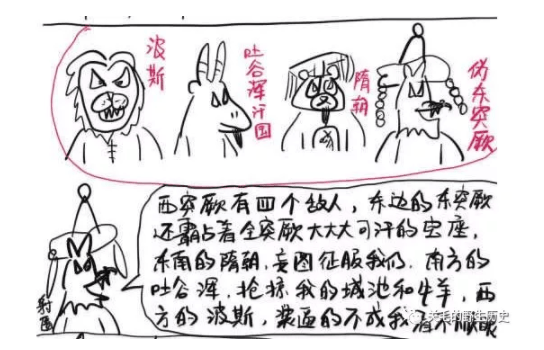 波斯
吐谷浑汗国
隋朝
伪东突厥
西突厥有四个敌人，东边的东突厥
还霸占着全突厥大大大可汗的宝座，
东南的隋朝，妄图征服我们，南方的
吐谷浑，抢掠我的城池和牛羊，西
方的波斯，装逼的不成我
射匮
的野生历史